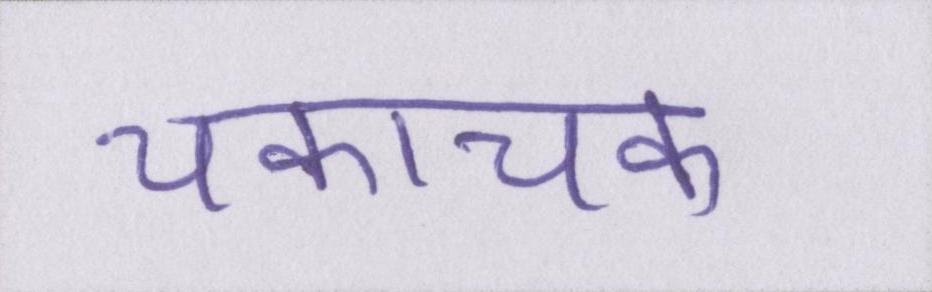 चकाचक